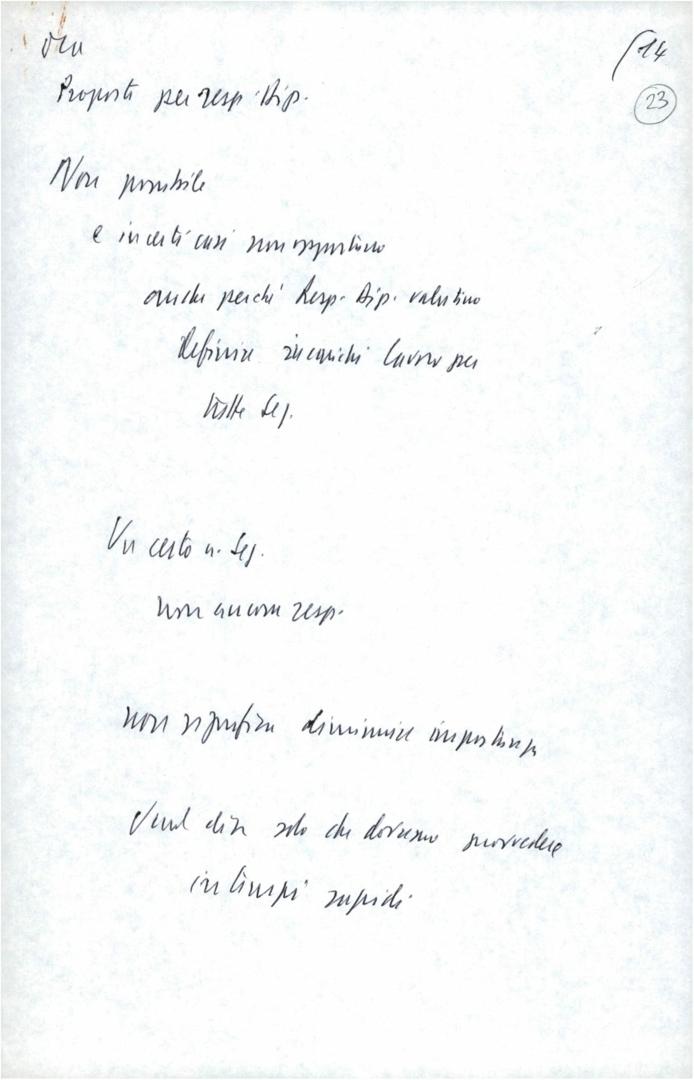 Ora
14
23
Proposte per resp. Dip.
Non possibile
e in certi casi non opportuno
anche perché Resp. Dip. valutino
Definire incarichi lavoro per
tutte Seg.
Un certo n. Seg.
non ancora resp.
non significa diminuire importanza
Vuol dire solo che dovremo provvedere
in tempi rapidi